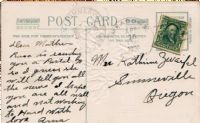 POST CARD
Dear Mother
Rosa is sending
you a Postal to
so I guess she
will tell you all
the news I hope
you are all well
and not working
to Hard With
love Anna
Mrs Kathrine Zweifel
Summerville
Oregon